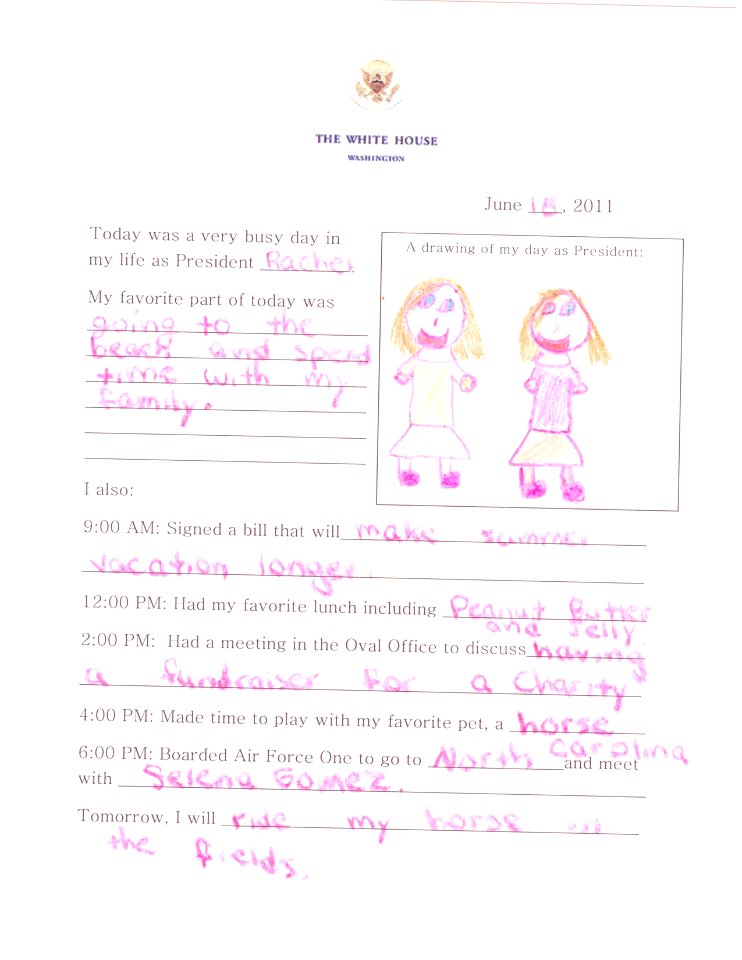 THE WHITE HOUSE
WASHINGTON
June 18, 2011
Today was a very busy day in
my life as President Rachel
A drawing of my day as President:
My favorite part of today was
going to the
beach and spend
time with my
family.
I also:
9:00 AM: Signed a bill that will make summer
vacation longer.
12:00 PM: Had my favorite lunch including Peanut Butter
and Jelly
2:00 PM: Had a meeting in the Oval Office to discuss having
a fundraiser for a charity
4:00 PM: Made time to play with my favorite pet, a horse
6:00 PM: Boarded Air Force One to go to North Carolina and meet
with Selena Gomez.
Tomorrow, I will ride my horse in
the fields.